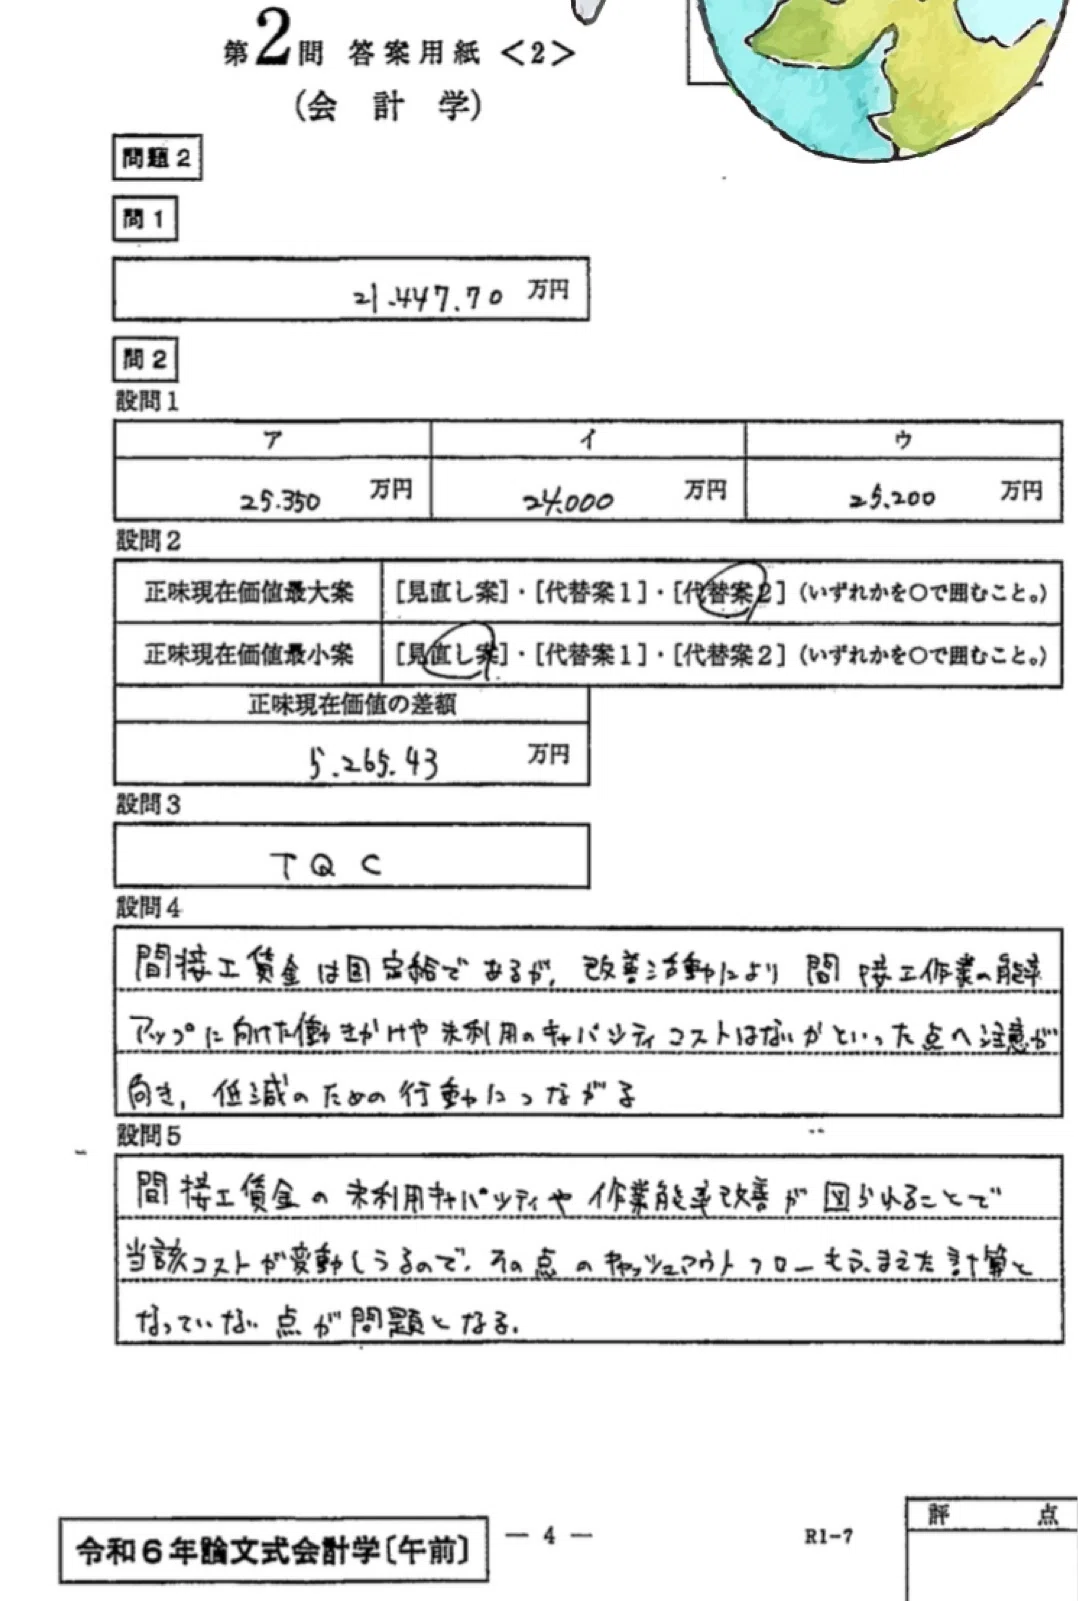 第2問 答案用紙 <2>
(会 計 学)
問題2
問1
21.447.70 万円
問2
設問1
ア イ ウ
25.350 万円 24.000 万円 25.200 万円
設問2
正味現在価値最大案 [見直し案]・[代替案1]・[代替案2](いずれかを○で囲むこと。)
正味現在価値最小案 [見直し案]・[代替案1]・[代替案2](いずれかを○で囲むこと。)
正味現在価値の差額
5.265.43 万円
設問3
TQC
設問4
間接工賃金は固定給であるが,改善活動により間接工作業の能率
アップに向けた働きかけや未利用のキャパシティコストはないかといった点へ注意が
向き,低減のための行動につながる
設問5
間接工賃金の未利用キャパシティや作業能率改善が図られることで
当該コストが変動しうるので,その点のキャッシュアウトフローもふまえた計算と
なっていない点が問題となる.
令和6年論文式会計学〔午前〕
― 4 ―
R1-7
評 点